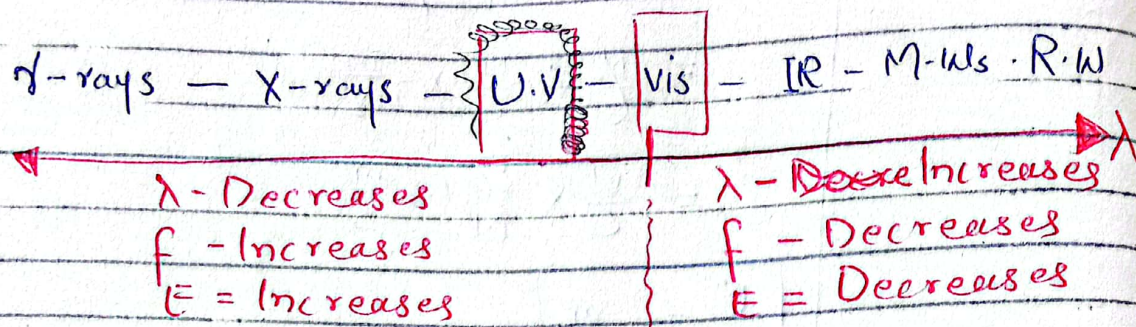 γ-rays — X-rays — U.V — Vis — IR - M-Ws . R.W
λ
λ - Decreases
f - Increases
E = Increases
λ - Increases
f - Decreases
E = Decreases